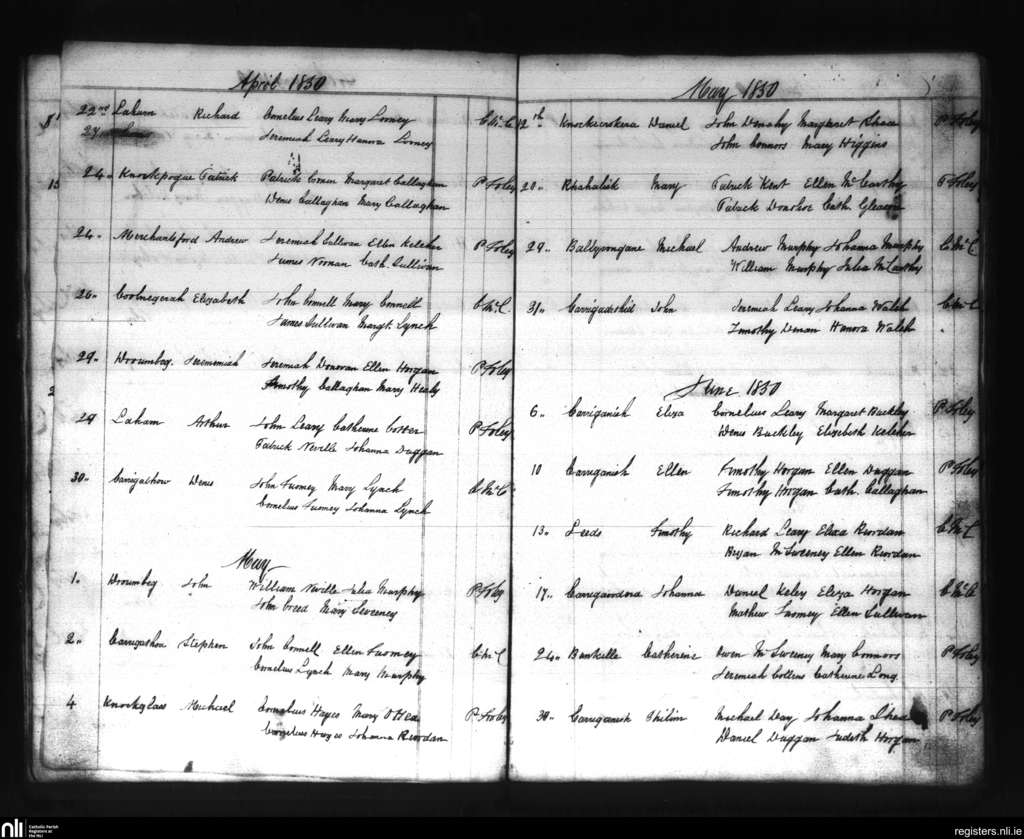 April 1850
22nd Laham Richard Cornelius Leary Mary Looney C. Mc. C
27 Jeremiah Leary Hanora Looney
24 Knockpogue Patrick Patrick Margaret Callaghan P Foley
Denis Callaghan Mary Callaghan
24 Merchantsford Andrew Jeremiah Sullivan Ellen Keleher P Foley
James Noonan Cath. Sullivan
26 Elizabeth John Connell Mary Connell C. Mc. C.
James Sullivan Margt. Lynch
29 Droumbeg. Jeremiah Donovan Ellen Horgan P Foley
Timothy Callaghan Mary Healy
29 Laham Arthur John Leary Catherine Cotter P Foley
Patrick Neville Johanna Duggan
30 Carrigashow Denis John Twomey Mary Lynch C. Mc. C
Cornelius Twomey Johanna Lynch
May
1. Droumbeg John William Neville Julia Murphy P Foley
John Creed Mary Sweeney
2 Stephen John Connell Ellen Twomey C. Mc. C
Cornelius Lynch Mary Murphy
4 Knockglass Michael Cornelius Hayes Mary O Hea P Foley
Cornelius Hayes Johanna Riordan
May 1850
12th Daniel John Denahy Margaret Shea P Foley
John Connors Mary Higgins
20 Mary Patrick Kent Ellen McCarthy P Foley
Patrick Donohoe Cath. Gleason
29 Michael Andrew Murphy Johanna Murphy C. Mc. C
William Murphy Julia McCarthy
31 John Jeremiah Leary Johanna Walsh C. Mc. C
Timothy Hanora Walsh
June 1850
6 Carriganish Eliza Cornelius Leary Margaret Buckley P Foley
Denis Buckley Elizabeth Keleher
10 Carriganish Ellen Timothy Horgan Ellen Duggan P Foley
Timothy Horgan Cath. Callaghan
13 Leeds Timothy Richard Leary Eliza Riordan C. Mc. C
Bryan McSweeney Ellen Riordan
17 Johanna Daniel Eliza Horgan C. Mc. C
Mathew Twomey Ellen Sullivan
24 Catherine Owen McSweeney Mary Connors P Foley
Jeremiah Collins Catherine Long
30 Carriganish Philim Michael Day Johanna Shea P Foley
Daniel Duggan Judith Horgan
nli Catholic Parish Registers at the NLI
registers.nli.ie